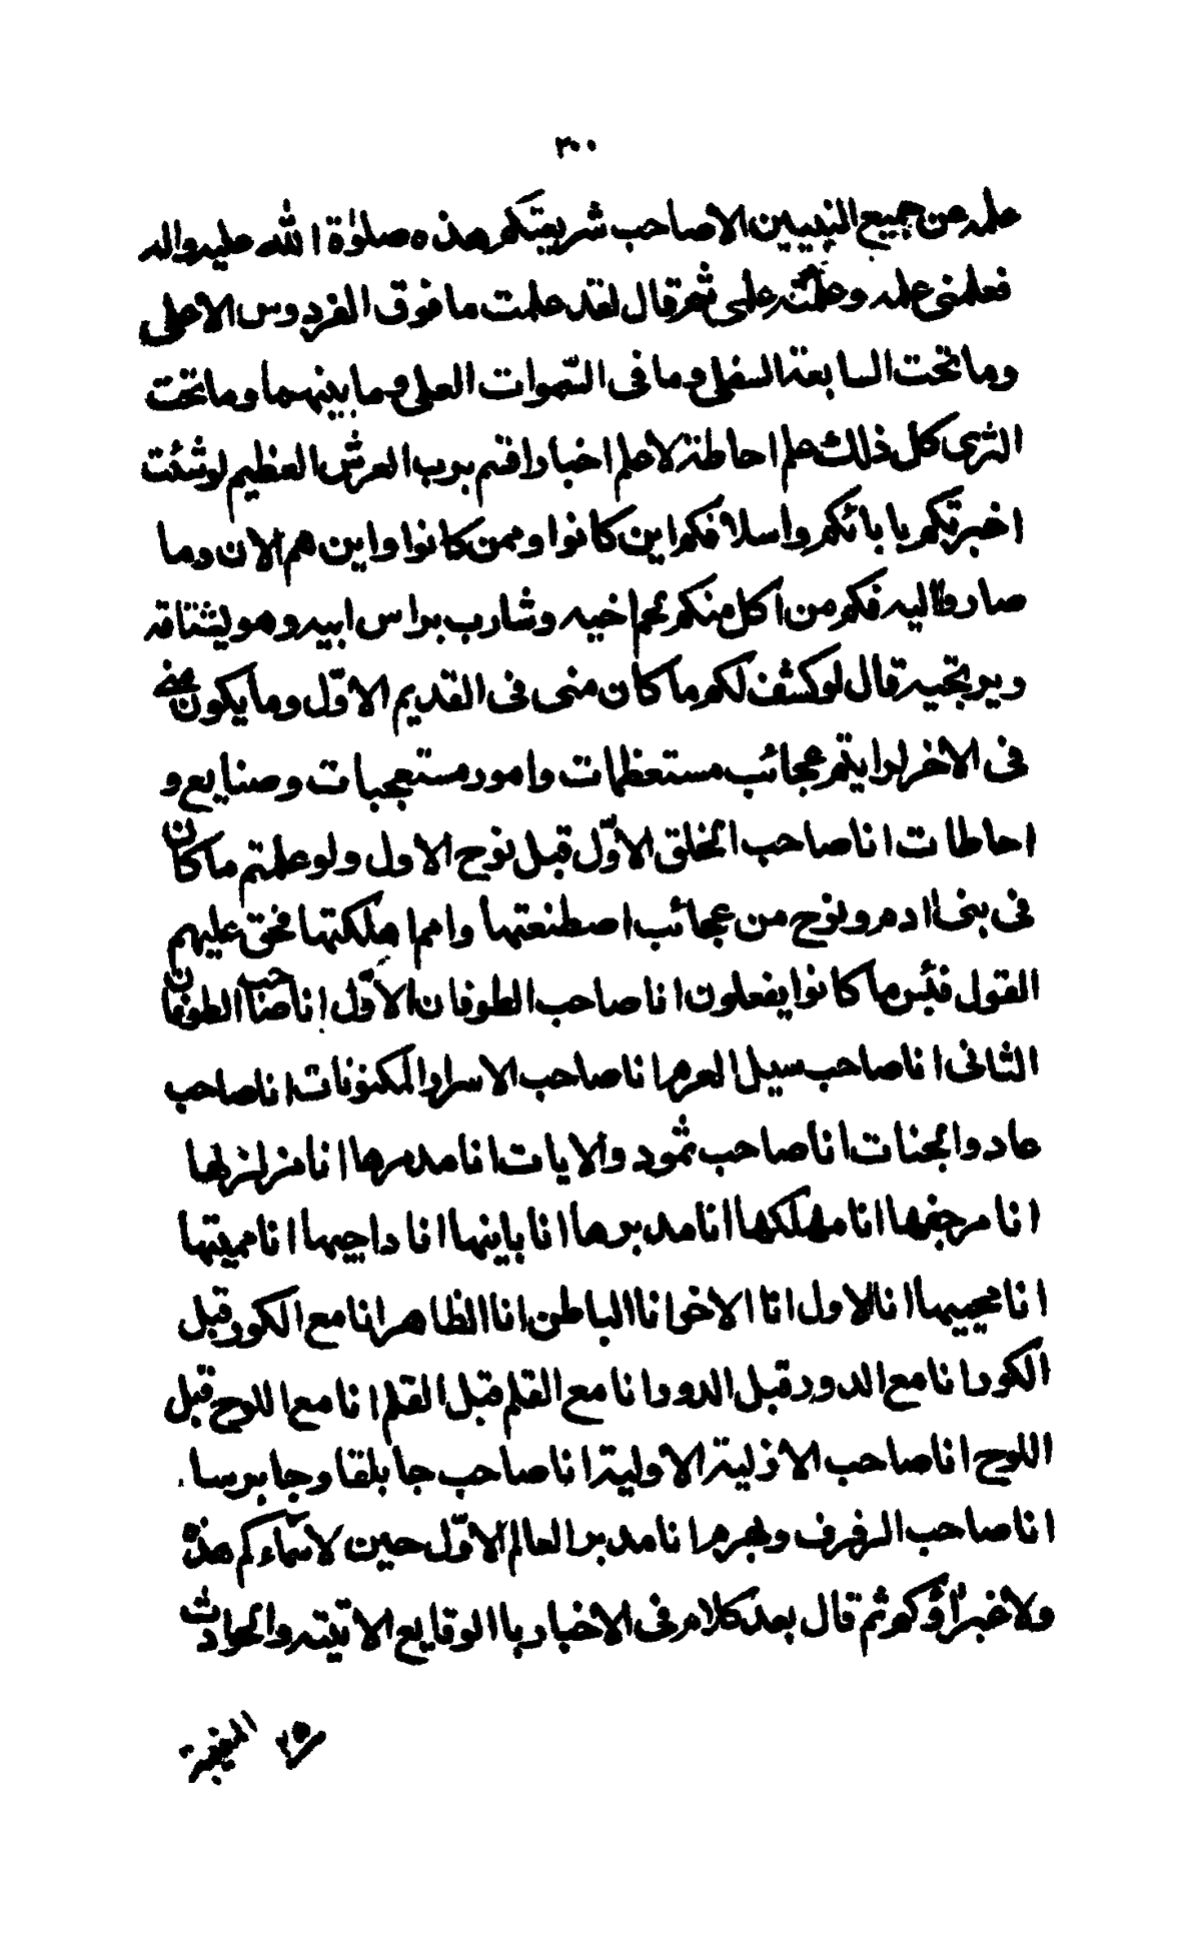 ٢٠٠
علمه عن جميع النبيين الا صاحب شريعتكم هذه صلوٰة الله عليه واله
فعلمنى علمه وعلمته علمى ثم قال لقد علمت ما فوق الفردوس الاعلى
وما تحت السابعة السفلى وما فى السّموات العلى وما بينهما وما تحت
الثرى كل ذلك علم احاطة لا علم اخبار اقسم برب العرش العظيم لو شئت
اخبرتكم بابائكم واسلافكم اين كانوا وممن كانوا واين هم الان وما
صاروا اليه فكم من اكل منكم لحم اخيه وشارب براس ابيه وهو يشتاقه
ويرتجيه قال لو كشف لكم ما كان منى فى القديم الاوّل وما يكون منى
فى الاخر لرايتم عجائب مستعظمات وامور مستعجبات وصنايع و
احاطات انا صاحب الخلق الاوّل قبل نوح الاول ولو علمتم ما كان
فى بنى ادم ونوح من عجائب اصطنعتها وامم اهلكتها فحق عليهم
القول فبئس ما كانوا يفعلون انا صاحب الطوفان الاوّل انا صاحب الطوفان
الثانى انا صاحب سيل العرم انا صاحب الاسرار المكنونات انا صاحب
عاد والجنات انا صاحب ثمود والايات انا مدمرها انا مزلزلها
انا مرجفها انا مهلكها انا مدبرها انا بانيها انا داحيها انا مميتها
انا محييها انا الاول انا الاخر انا الباطن انا الظاهر انا مع الكور قبل
الكور انا مع الدور قبل الدور انا مع القلم قبل القلم انا مع اللوح قبل
اللوح انا صاحب الازلية الاولية انا صاحب جابلقا وجابرسا
انا صاحب الرفرف وبهرم انا مدبر العالم الاوّل حين لا سمّاءكم هذه
ولا غبراؤكم ثم قال بعد كلام فى الاخبار با الوقايع الاتيته والحوادث